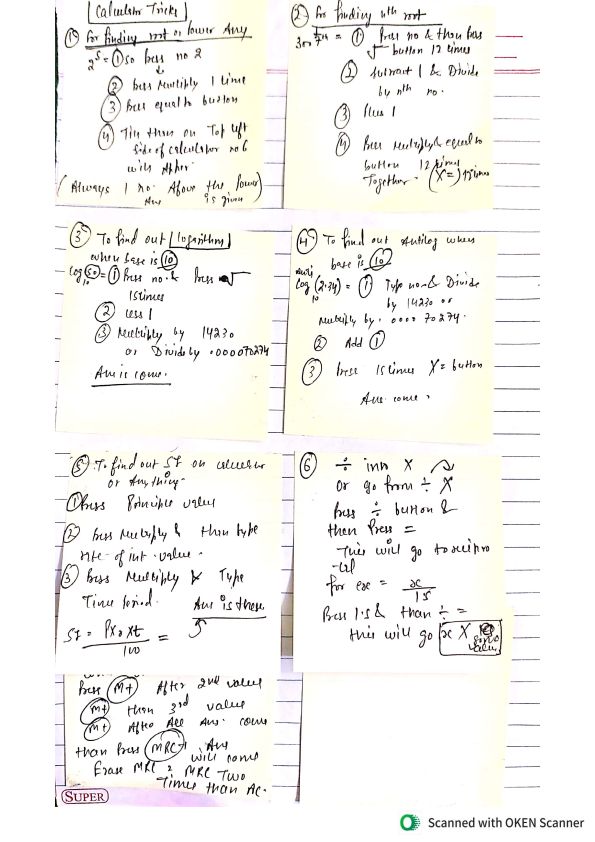 Calculator Tricks
① For finding root or lower Any
2⁵ = ① so Press no 2
② Press Multiply 1 time
③ Press equal to button
④ Tin then on Top left
side of calculator no 6
will Apper.
(Always 1 no. Above the power)
Ans is given
② For finding nth root
= ① Press no & then Press
√ button 12 times
② Subtract 1 & Divide
by nth no.
③ Plus 1
④ Press Multiply & equal to
button 12 times
Together. (X=) 12 times
③ To find out logarithm
when base is 10
log₁₀(50) = ① Press no. & Press √
15 times
② Less 1
③ Multiply by 14230
or Divide by .000070274
Ans is come.
④ To find out Antilog when
base is 10
Anti log₁₀(2.34) = ① Type no & Divide
by 14230 or
Multiply by .000070274.
② Add ①
③ Press 15 times X= button
Ans. come.
⑤ To find out SI on calculator
or Anything.
① Press Principle value
② Press Multiply & then type
rate of int. value.
③ Press Multiply & Type
Time period. Ans is there
SI = PXrXt/100 =
⑥ ÷ into X
or go from ÷ X
Press ÷ button &
then Press =
This will go to recipro
-cal
for exe = x/15
Press 15 & than ÷ =
this will go x X value
Press M+ After 2nd value
M+ then 3rd value
M+ After All Ans. come
than Press MRC Ans
will come
Erase MRC 2 MRC Two
Times than AC.
SUPER
Scanned with OKEN Scanner